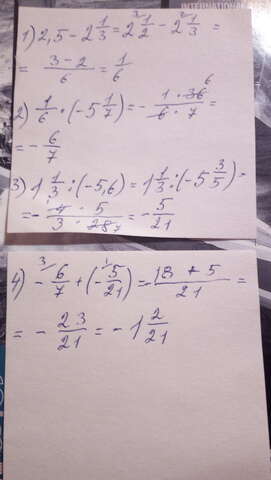 INTERNATIONAL
1) 2,5 - 2 1/3 = 2 1/2 - 2 1/3 =
= 3-2/6 = 1/6
2) 1/6 · (-5 1/7) = - 1 · 36/6 · 7 =
= - 6/7
3) 1 1/3 : (-5,6) = 1 1/3 : (-5 3/5) =
= - 4 · 5/3 · 28 = - 5/21
4) - 6/7 + (- 5/21) = 18 + 5/21 =
= - 23/21 = - 1 2/21